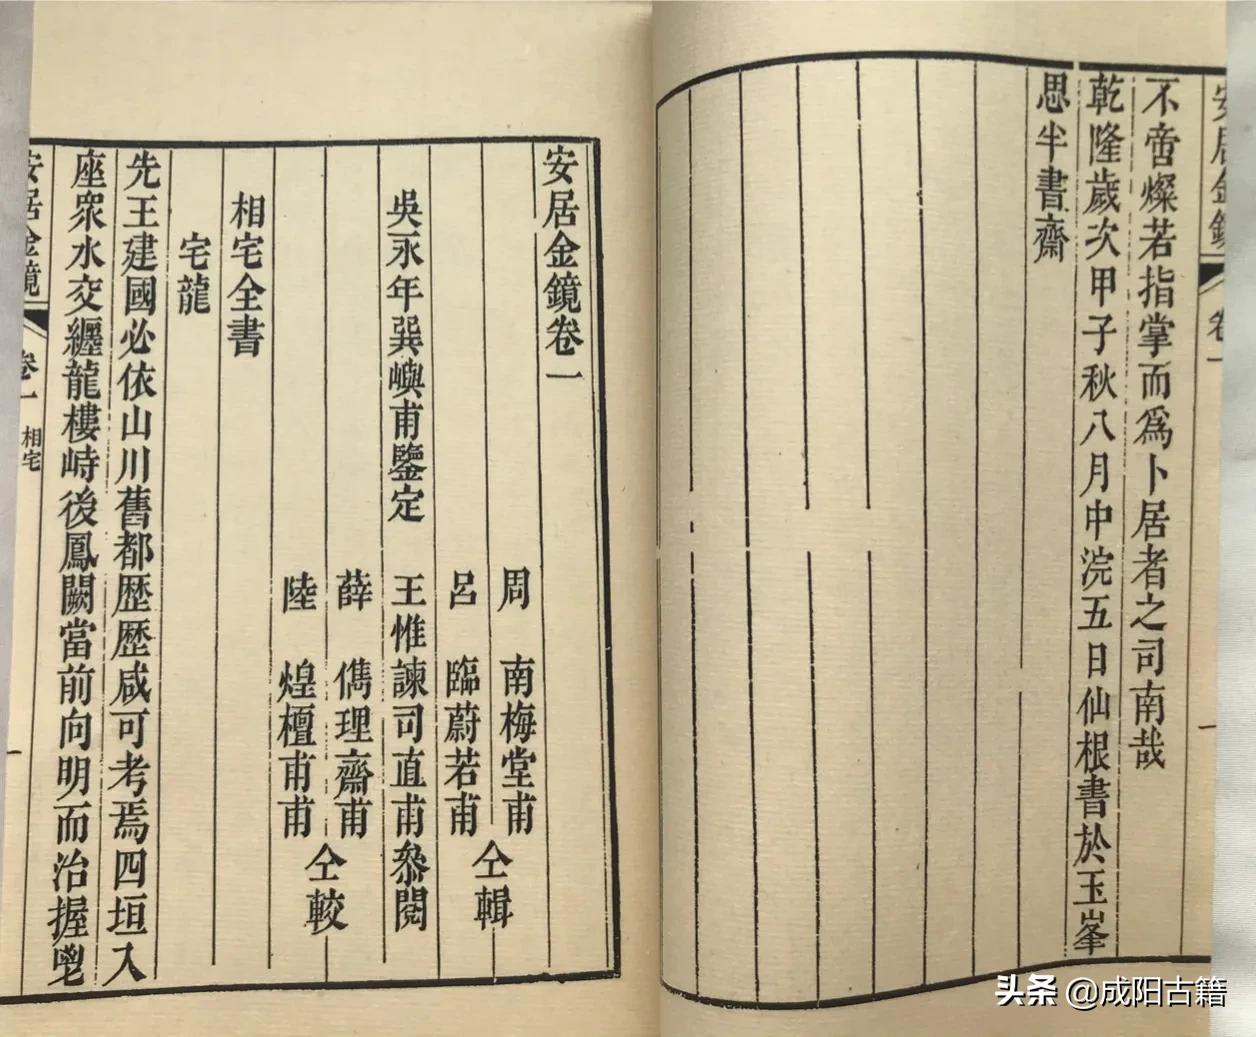 安居金鏡 卷一
不啻燦若指掌而爲卜居者之司南哉
乾隆歲次甲子秋八月中浣五日仙根書於玉峯
思半書齋
安居金鏡卷一
周 南梅堂甫
呂 臨蔚若甫
仝輯
吳永年巽嶼甫鑒定
王惟諫司直甫叅閱
薛 儁理齋甫
陸 煌檀甫甫
仝較
相宅全書
宅龍
先王建國必依山川舊都歷歷咸可考焉四垣入
座衆水交纏龍樓峙後鳳闕當前向明而治握
安居金鏡 卷一 相宅 一
头条 @成阳古籍